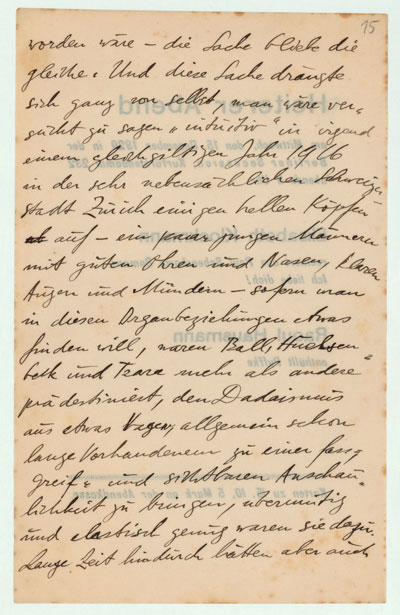 15
worden wäre – die Sache bliebe die
gleiche. Und diese Sache drängte
sich ganz von selbst, man wäre ver-
sucht zu sagen „intuitiv“ in irgend
einem gleichgültigen Jahr 1916
in der sehr nebensächlichen Schweizer
stadt Zürich einigen hellen Köpfen
auf – ein paar jungen Männern
mit guten Ohren und Nasen, klaren
Augen und Mündern – sofern man
in diesen Organbeziehungen etwas
finden will, waren Ball, Huelsen-
beck und Tzara mehr als andere
prädestiniert, den Dadaismus
aus etwas Vagen, allgemein schon
lange Vorhandenem zu einer fass-
greif- und sichtbaren Anschau-
lichkeit zu bringen, übermütig
und elastisch genug waren sie dazu.
Lange Zeit hindurch hätten aber auch